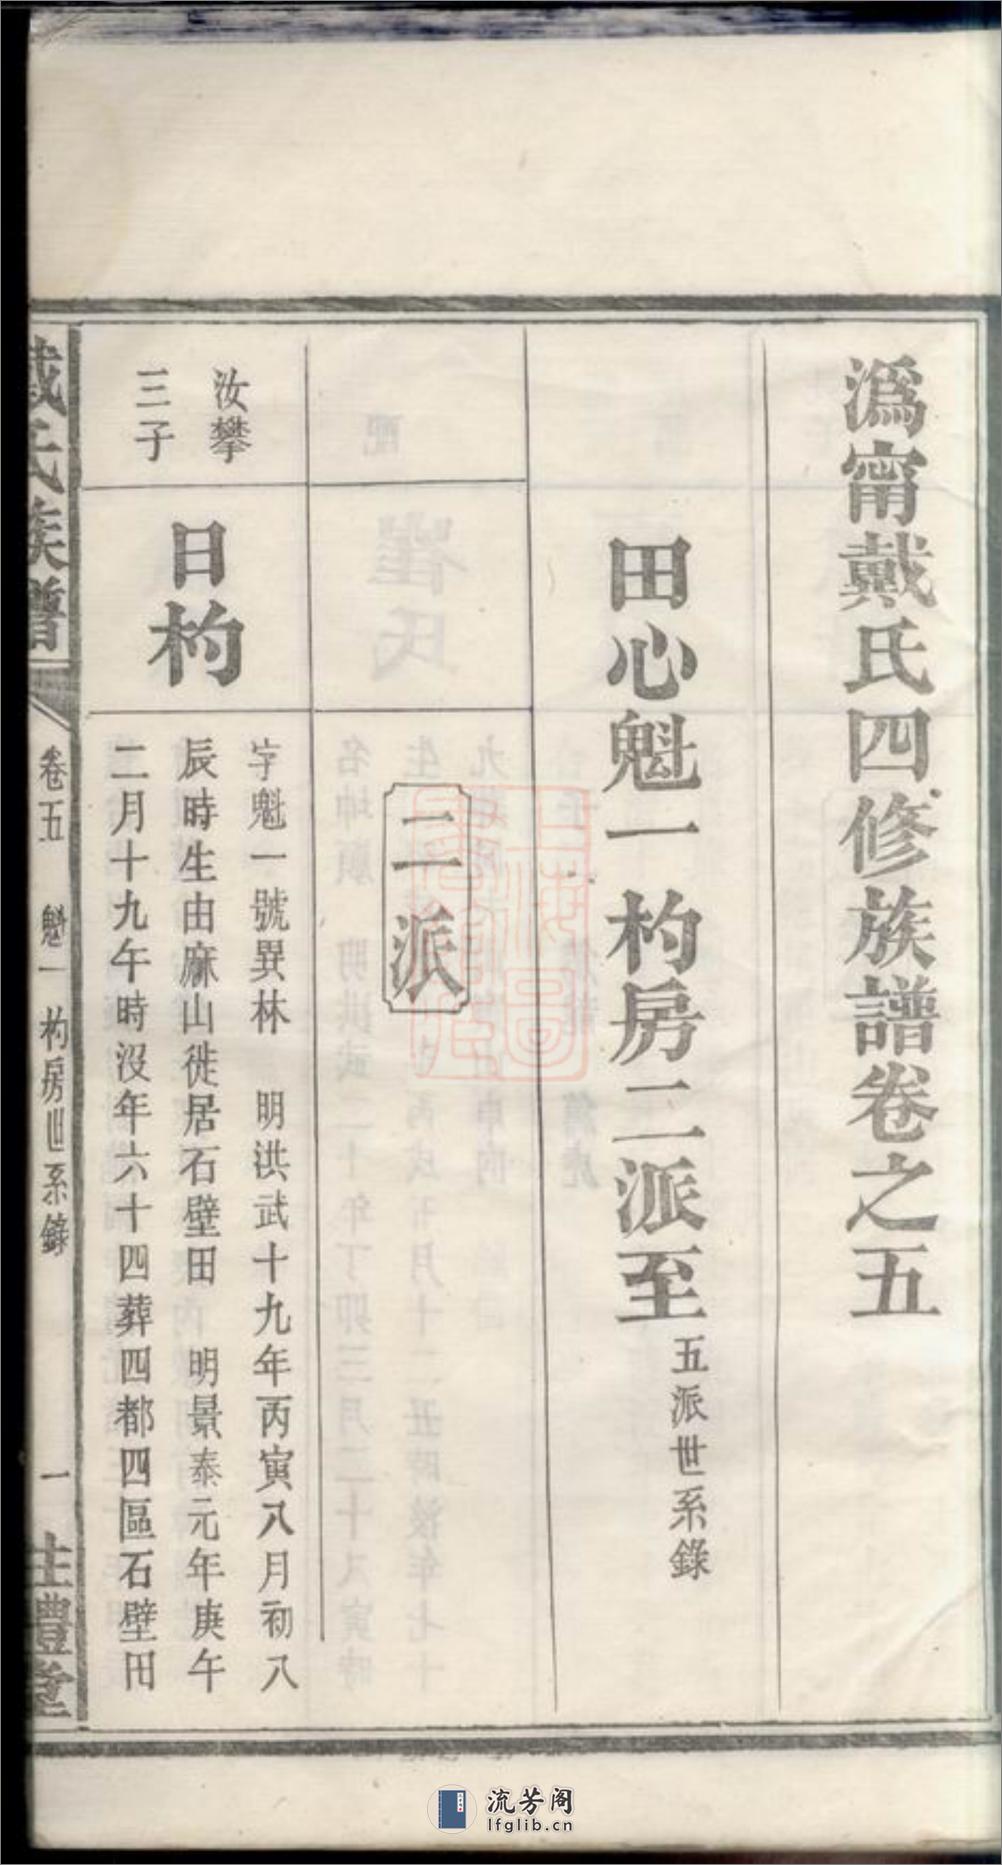 溈甯戴氏四修族譜卷之五
田心魁一杓房二派至五派世系錄
二派
汝攀
三子
日杓
字魁一號異林　明洪武十九年丙寅八月初八
辰時生由麻山徙居石壁田　明景泰元年庚午
二月十九午時沒年六十四葬四都四區石壁田
戴氏族譜
卷五　魁一杓房世系錄
一
注禮堂
流芳阁
lfglib.cn